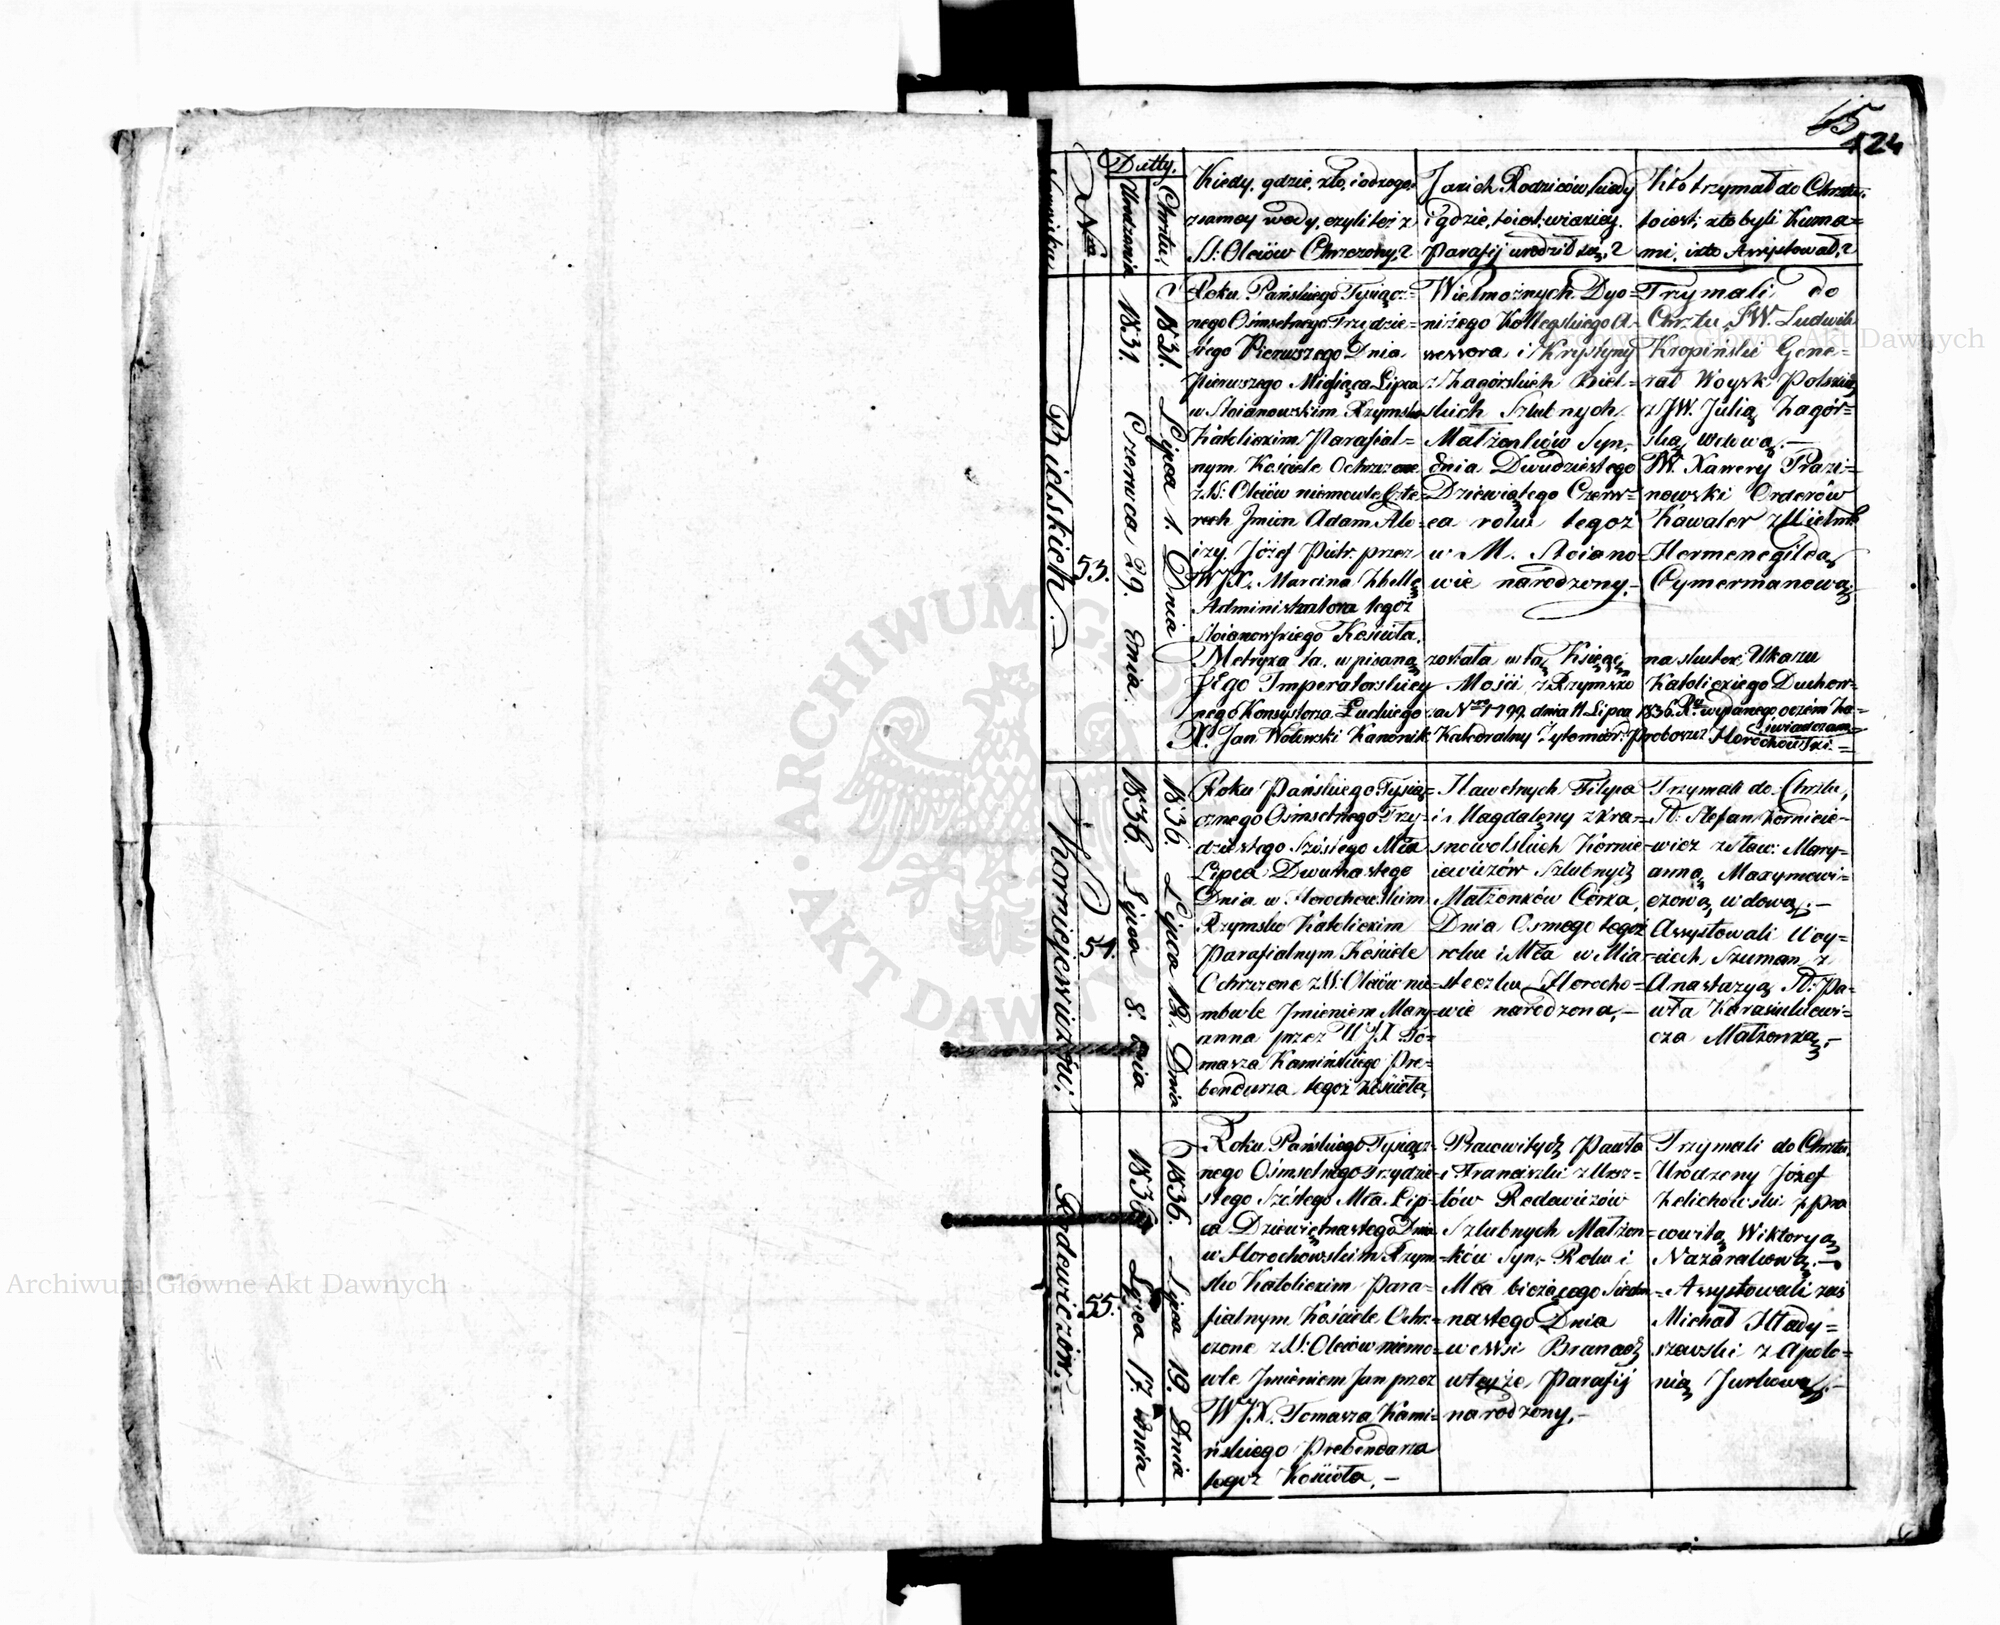 65
124
Nazwisko
Nro
Datty.
Urodzenia
Chrztu.
Kiedy, gdzie, kto, i od czego,
z samey wody, czyli też z
SS: Oleiów Chrzczony?
Jakich Rodziców kiedy
i gdzie, to iest: w iakiey
Parafij urodził się?
Kto trzymał do Chrztu.
to iest; kto byli Kuma=
mi, i kto Assystował?
Bielskich.
53.
1831. Czerwca 29. dnia
1831. Lipca 1. Dnia
Roku Pańskiego Tysiącz=
nego Ośmsetnego Trzydzie=
stego Pierwszego Dnia
Pierwszego Miesiąca Lipca
w Stoianowskim Rzymsko
Katolickim Parafial=
nym Kościele Ochrzczone
z SS: Oleiów niemowle Czte=
rech Jmion Adam Alo=
izy, Józef Piotr. przez
WJX. Marcina
Administratora tegoż
Stoianowskiego Kościoła.
Wielmożnych Dyo=
niżego Kollegskiego A=
ssessora i Krystyny
z Zagórskich Biel=
skich Szlubnych
Małżonków Syn,
dnia Dwudziestego
Dziewiątego Czerw=
ca roku tegoż
w M. Stoiano=
wie narodzony.–
Trzymali do
Chrztu, JW. Ludwik
Kropiński Gene=
rał Woysk Polskich
z JW. Julią Zagór=
ską wdową.–
W. Xawery Prazi=
nowski Orderów
Kawaler z Wielm:
Hermenegildą
Cymermanową
Metryka ta, wpisana została w tą Księgę na skutek Ukazu
JEgo Imperatorskiey Mości z Rzymsko Katolickiego Duchow=
nego Konsystorza Łuckiego za Nrem 1799. dnia 11 Lipca 1836. Rku wydanego oczem za=
świadczam=
X. Jan Wołowski Kanonik Katedralny Żytomier: Proboszcz Horochowski.=
Kornijewiczów.
54.
1836. Lipca 8. dnia
1836. Lipca 12. Dnia
Roku Pańskiego Tysią=
cznego Ośmsetnego Trzy=
dziestego Szóstego Mca
Lipca Dwunastego
Dnia w Horochowskim
Rzymsko Katolickim
Parafialnym Kościele
Ochrzczone z SS: Oleiów nie=
mowle Jmieniem Mary=
anna przez WJX To=
masza Kamińskiego Pre=
bendarza tegoż Kościoła,
Sławetnych Filipa
i Magdaleny z Kra=
snowolskich Kornie=
iewiczów Szlubnych
Małżonków Córka,
Dnia Osmego tegoż
roku i Mca w Mia=
steczku Horocho=
wie narodzona,–
Trzymali do Chrztu,
P. Stefan Korniie=
wicz z sław: Mary=
anną Maxymowi=
czową wdową.–
Assystowali Woy=
ciech Szuman z
Anastazyą P: Pa=
wła Karasiukiewi=
cza Małżonką,–
Redewiczów.
55.
1836 Lipca 17. dnia
1836. Lipca 19. Dnia
Roku Pańskiego Tysiącz=
nego Ośmsetnego Trzydzie=
stego Szóstego Mca Lip=
ca Dziewiętnastego Dnia
w Horochowskim Rzym=
sko Katolickim Para=
fialnym Kościele Ochrz=
czone z SS: Oleiów niemo=
wle Jmieniem Jan przez
WJX. Tomasza Kami=
ńskiego Prebendarza
tegoż Kościoła,–
Pracowitych Pawła
i Franciszki z
Redewiczów
Szlubnych Małżon=
ków Syn,– Roku i
Mca bieżącego Siedm=
nastego Dnia
we Wsi Branach
w teyże Parafij
narodzony,–
Trzymali do Chrztu,
Urodzony Józef
Zelichowski z pra
cowitą Wiktoryą
Nazarukową.–
Assystowali zaś
Michał Hłady=
szewski z Apolo=
nią Jurkową,–
Archiwum Główne Akt Dawnych
Archiwum Główne Akt Dawnych
ARCHIWUM GŁÓWNE AKT DAWNYCH